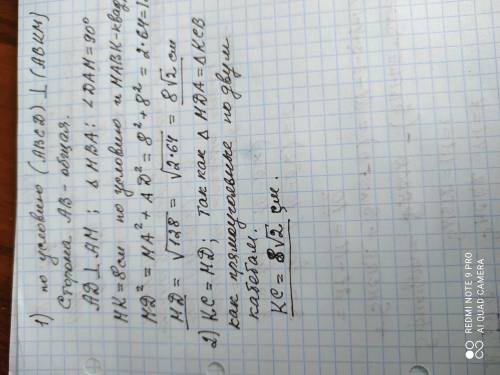 1) по условию (ABCD) ⊥ (ABKM)
Сторона AB - общая.
AD ⊥ AM ; △ MBA: ∠DAM = 90°
MK = 8 см по условию и MABK - квад
MD² = MA² + AD² = 8² + 8² = 2·64 = 1
MD = √128 = √2·64 = 8√2 см
2) KC = MD; так как △ MDA = △ KCB
как прямоугольные по двум
катетам.
KC = 8√2 см.
REDMI NOTE 9 PRO
AI QUAD CAMERA